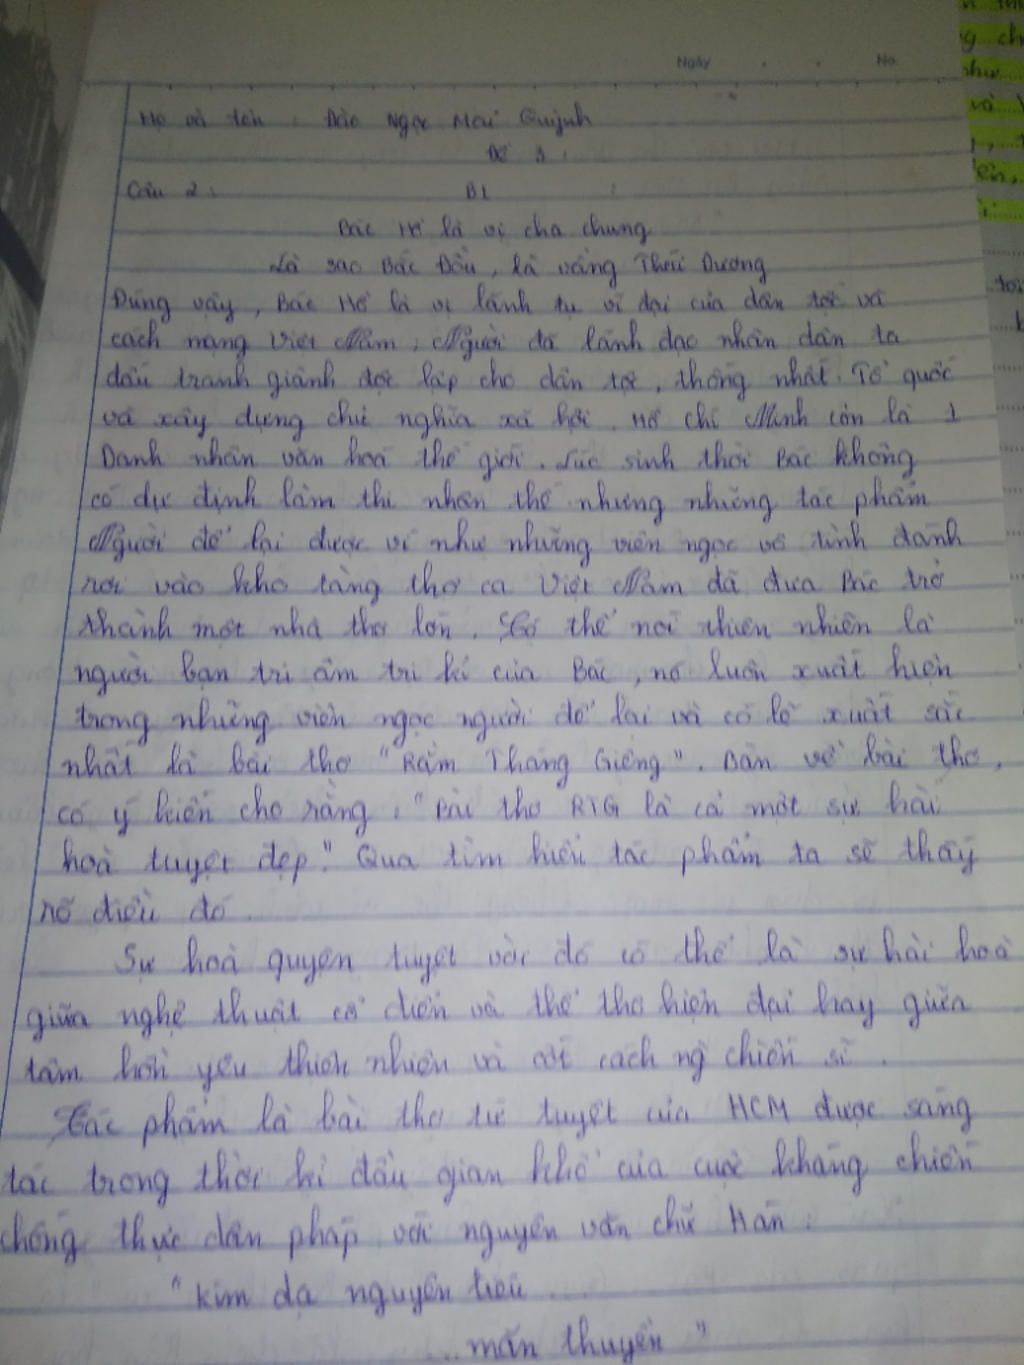 Ngày No.
Họ và tên : Đào Ngọc Mai Quỳnh
Đề 3 :
Câu 2 : BL :
Bác Hồ là vị cha chung
Là sao Bắc Đẩu, là vầng Thái Dương
Đúng vậy, Bác Hồ là vị lãnh tụ vĩ đại của dân tộc và
cách mạng Việt Nam, Người đã lãnh đạo nhân dân ta
đấu tranh giành độc lập cho dân tộc, thống nhất Tổ quốc
và xây dựng chủ nghĩa xã hội. Hồ Chí Minh còn là 1
Danh nhân văn hoá thế giới. Lúc sinh thời Bác không
có dự định làm thi nhân thế nhưng những tác phẩm
Người để lại được ví như những viên ngọc vô tình đánh
rơi vào kho tàng thơ ca Việt Nam đã đưa Bác trở
thành một nhà thơ lớn. Có thể nói thiên nhiên là
người bạn tri âm tri kỉ của Bác, nó luôn xuất hiện
trong những viên ngọc người để lại và có lẽ xuất sắc
nhất là bài thơ "Rằm Tháng Giêng". Bàn về bài thơ,
có ý kiến cho rằng : "Bài thơ RTG là cả một sự hài
hoà tuyệt đẹp." Qua tìm hiểu tác phẩm ta sẽ thấy
rõ điều đó.
Sự hoà quyện tuyệt vời đó có thể là sự hài hoà
giữa nghệ thuật cổ điển và thể thơ hiện đại hay giữa
tâm hồn yêu thiên nhiên và cốt cách ng chiến sĩ.
Tác phẩm là bài thơ tứ tuyệt của HCM được sáng
tác trong thời kì đầu gian khổ của cuộc kháng chiến
chống thực dân pháp với nguyên văn chữ Hán :
"Kim dạ nguyên tiêu ...
... mãn thuyền"